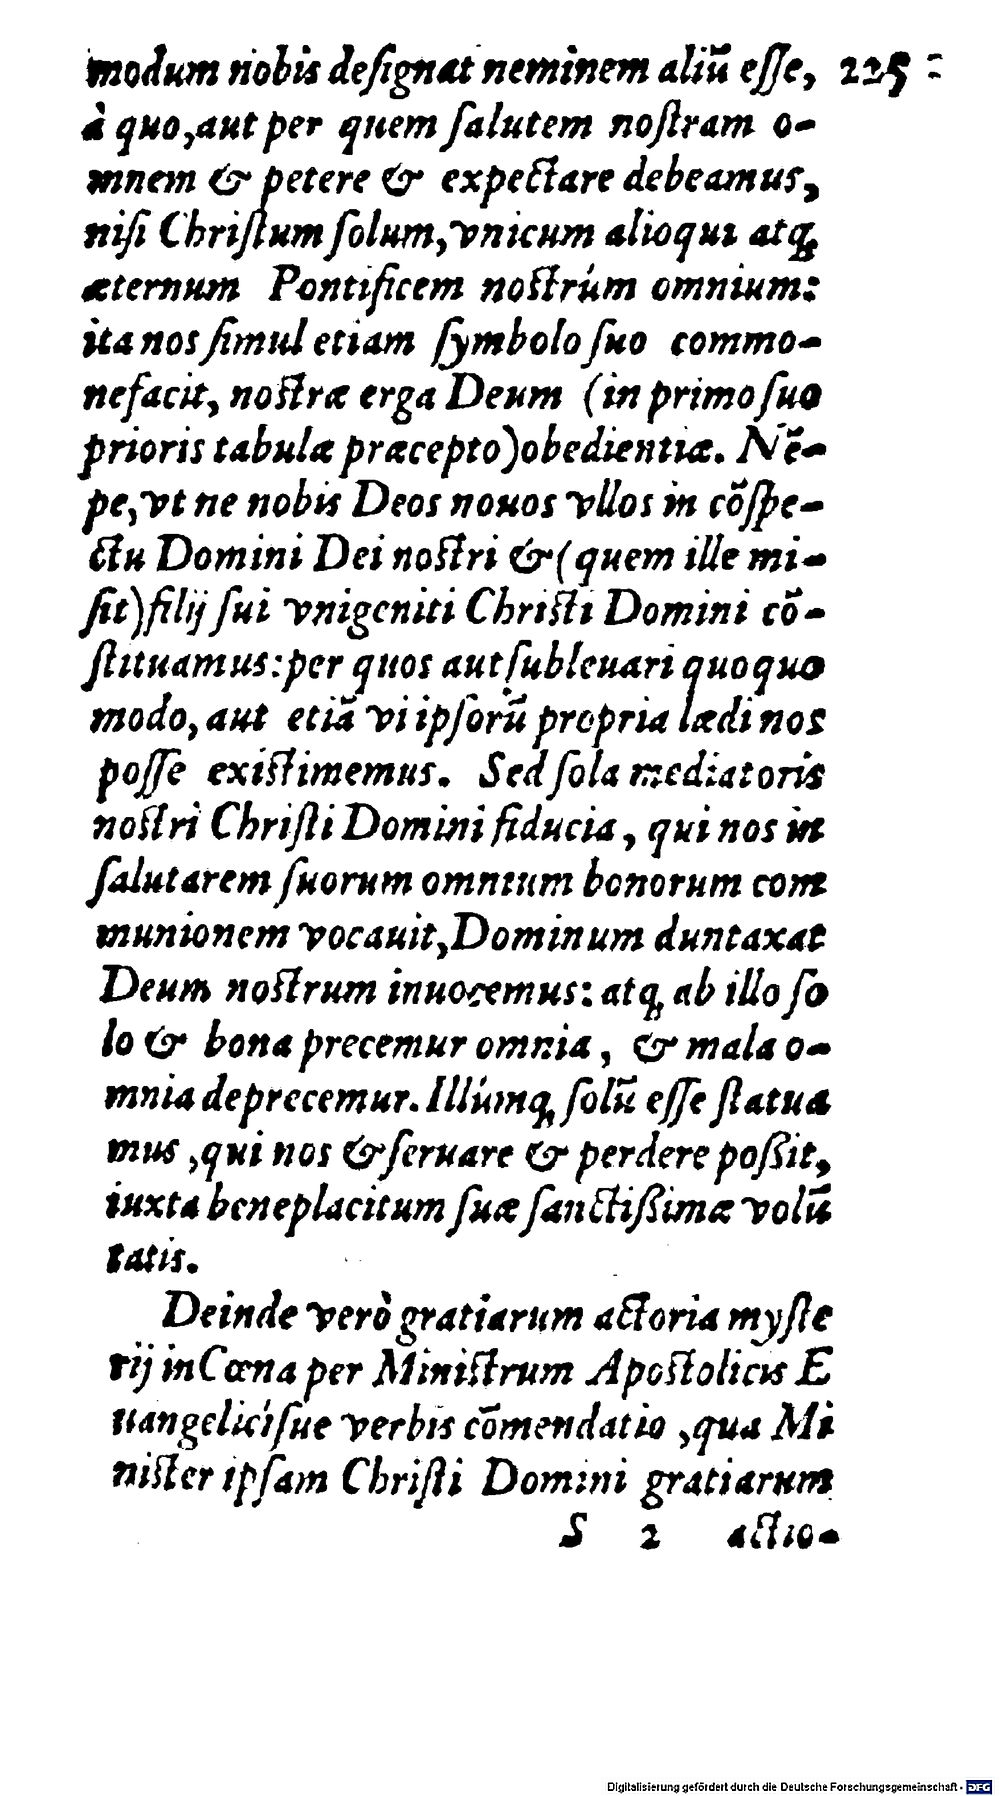 modum nobis deſignat neminem aliũ eſſe, 225
à quo, aut per quem ſalutem noſtram o-
mnem & petere & expectare debeamus,
niſi Chriſtum ſolum, vnicum alioqui atq́;
æternum Pontificem noſtrúm omnium:
ita nos ſimul etiam ſymbolo ſuo commo-
nefacit, noſtræ erga Deum (in primo ſuo
prioris tabulæ præcepto) obedientiæ. Nẽ-
pe, vt ne nobis Deos nouos vllos in cõſpe-
ctu Domini Dei noſtri & (quem ille mi-
ſit) filij ſui vnigeniti Chriſti Domini cõ-
ſtituamus: per quos aut ſubleuari quoquo
modo, aut etiã vi ipſorũ propria lædi nos
poſſe exiſtimemus. Sed ſola mediatoris
noſtri Chriſti Domini fiducia, qui nos in
ſalutarem ſuorum omnium bonorum com
munionem vocauit, Dominum duntaxat
Deum noſtrum inuocemus: atq; ab illo ſo
lo & bona precemur omnia, & mala o-
mnia deprecemur. Illúmq; ſolũ eſſe ſtatua
mus, qui nos & ſeruare & perdere poßit,
iuxta beneplacitum ſuæ ſanctißimæ volũ
tatis.
Deinde verò gratiarum actoria myſte
rij in Cœna per Miniſtrum Apoſtolicis E
uangelicíſue verbis cõmendatio, qua Mi
niſter ipſam Chriſti Domini gratiarum
S 2 actio-
Digitalisierung gefördert durch die Deutsche Forschungsgemeinschaft - DFG